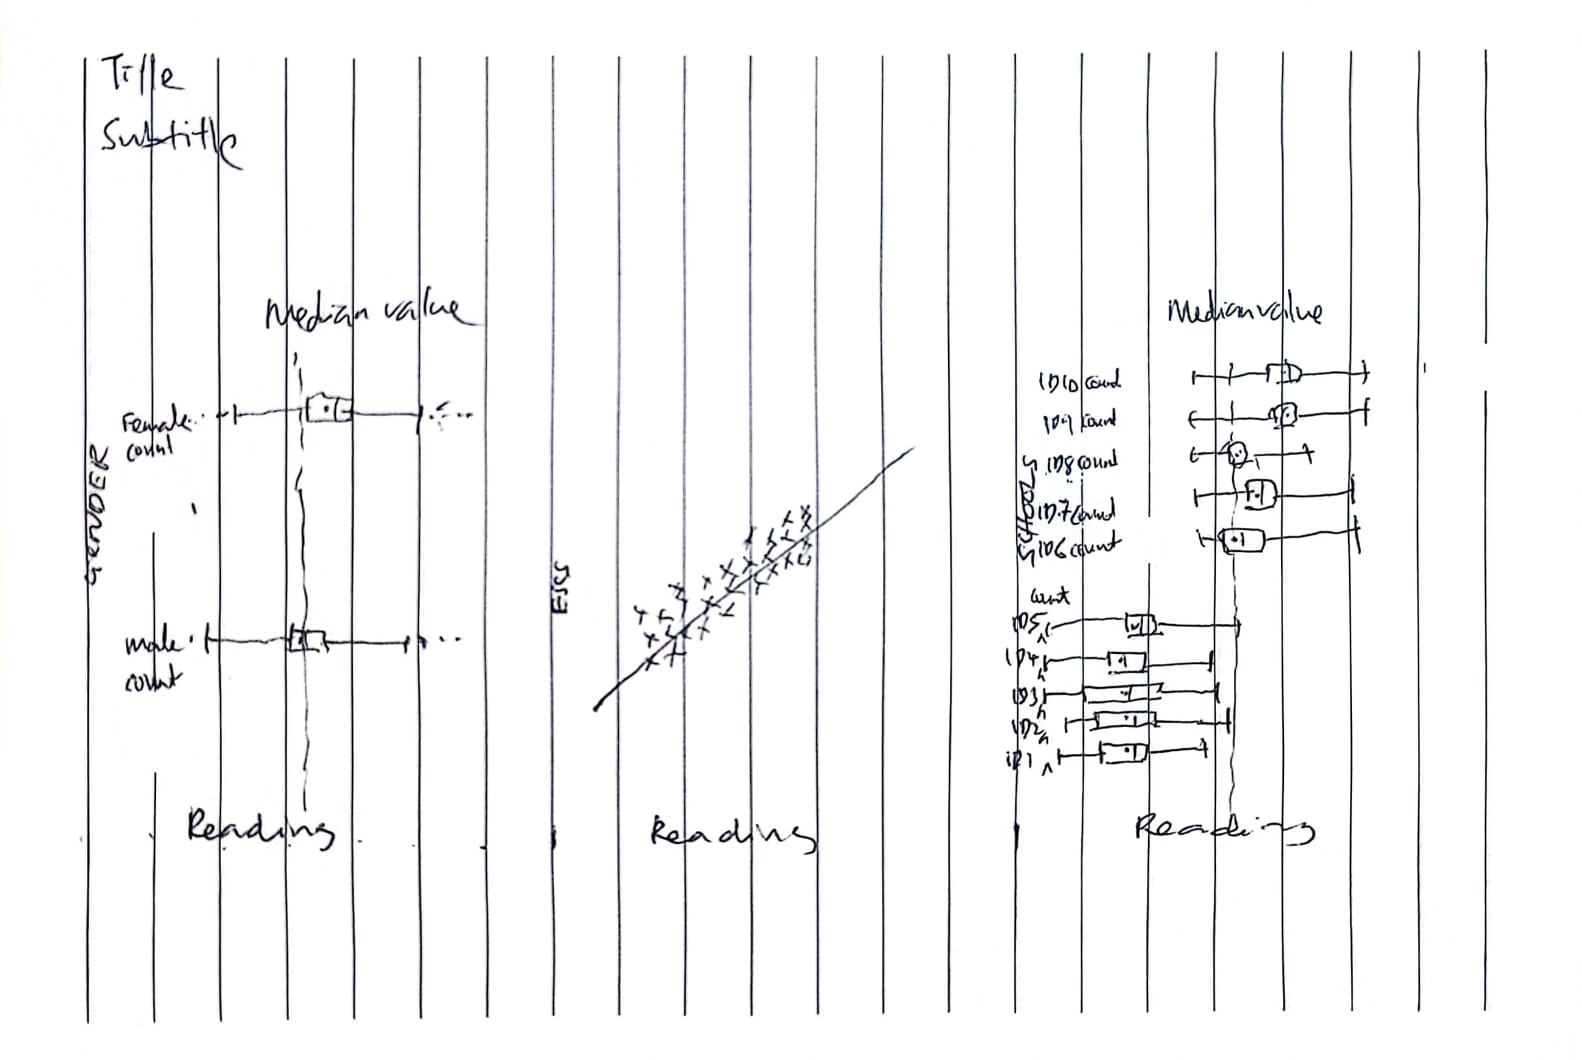 Title
Subtitle
Median value
Female
count
GENDER
male
count
Reading
ESCS
Reading
Median value
ID10 count
ID9 count
ID8 count
ID7 count
ID6 count
SCHOOLS
count
ID5
ID4
ID3
ID2
ID1
Reading